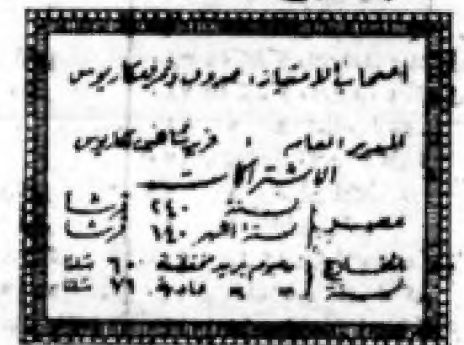 أصحاب الامتياز: صروف ونمر ومكاريوس
المدير العام : فريد شاهين مكاريوس
الاشتراكات
مصر { سنة ٢٤٠ قرشا
ستة اشهر ١٤٠ قرشا
الخارج { رسوم بريد مخفضة ٦٠ شلنا
سنة { " " عادية ٧٦ شلنا